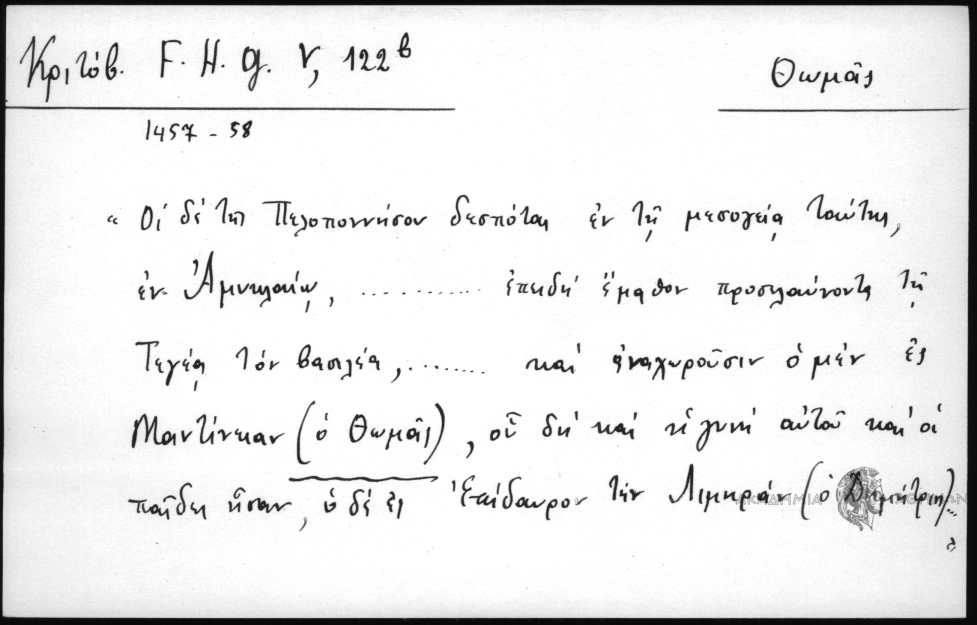 Κριτόβ. F. H. G. V, 122β
Θωμᾶς
1457 - 58
« Οἱ δέ τῆς Πελοποννήσου δεσπόται ἐν τῇ μεσογείᾳ ταύτης,
ἐν Ἀμυκλαίῳ, ............ ἐπειδή ἔμαθον προσελαύνοντα τῇ
Τεγέᾳ τόν βασιλέα, ........ καί ἀναχωροῦσιν ὁ μέν ἐς
Μαντίνειαν (ὁ Θωμᾶς), οὗ δή καί ἡ γυνή αὐτοῦ καί οἱ
παῖδες ἦσαν, ὁ δέ ἐς Ἐπίδαυρον τήν Λιμηράν (ὁ Δημήτριος)... »
ΑΚΑΔΗΜΙΑ ΑΘΗΝΩΝ